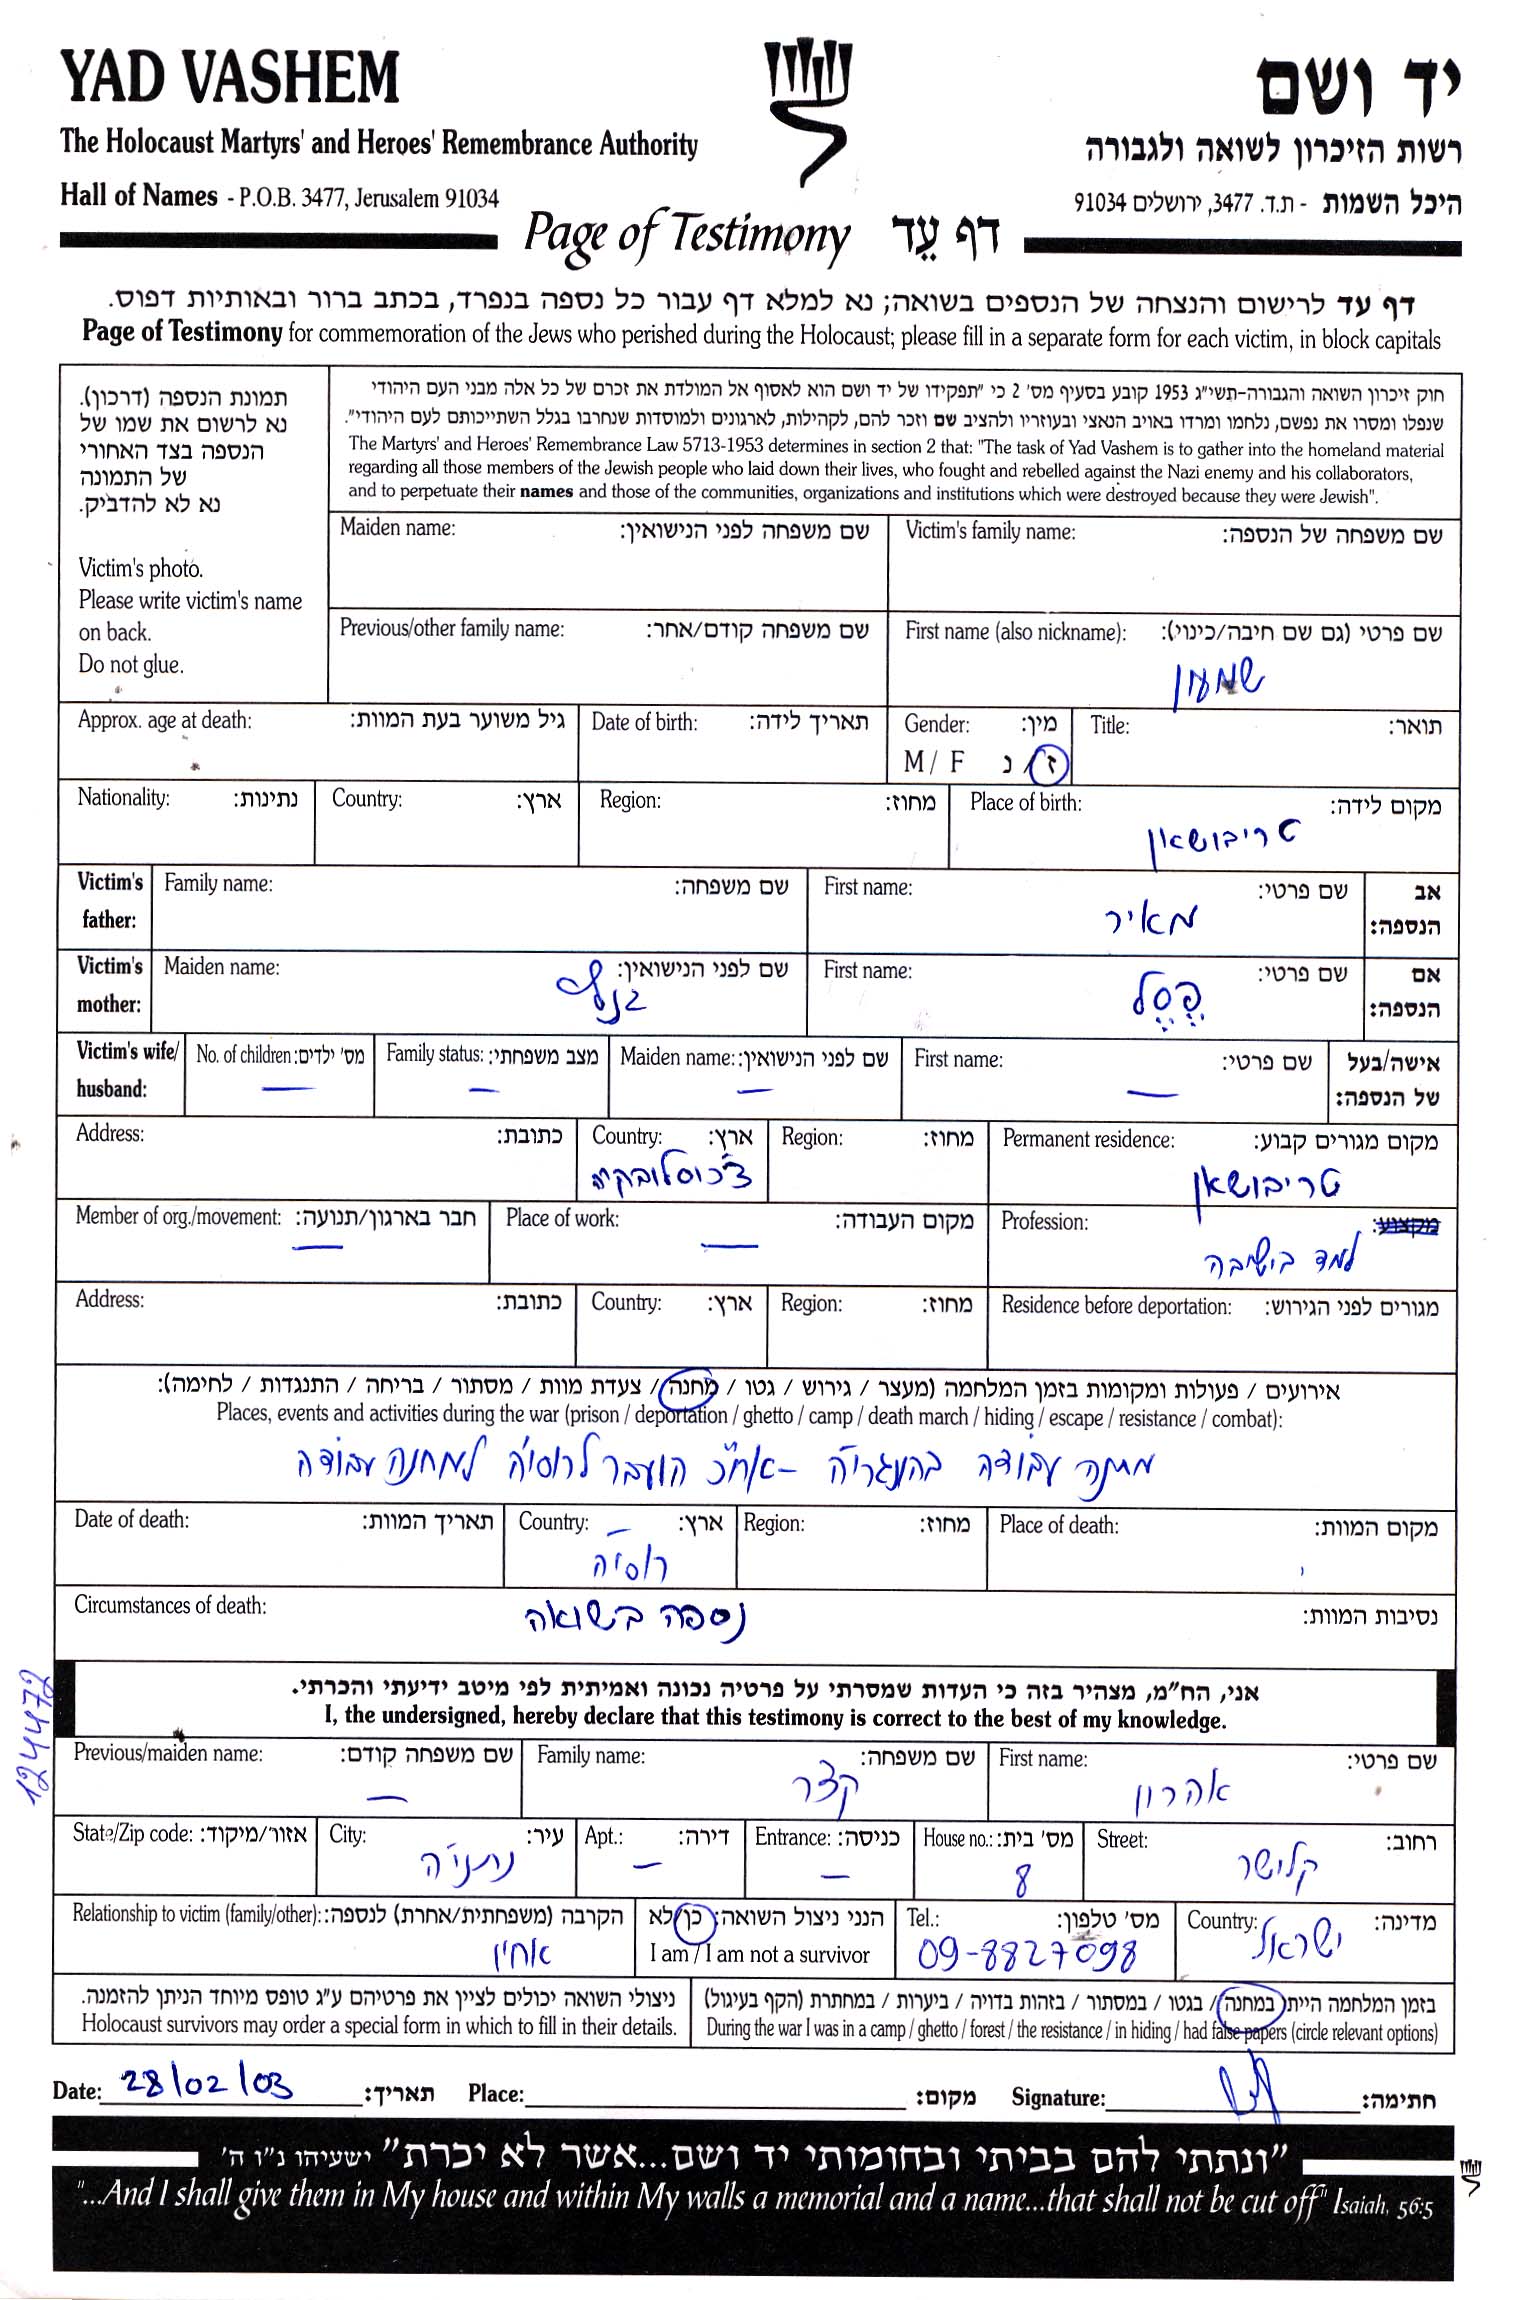 YAD VASHEM
יד ושם
The Holocaust Martyrs' and Heroes' Remembrance Authority
רשות הזיכרון לשואה ולגבורה
Hall of Names - P.O.B. 3477, Jerusalem 91034
היכל השמות - ת.ד. 3477, ירושלים 91034
Page of Testimony דף עֵד
דף עד לרישום והנצחה של הנספים בשואה; נא למלא דף עבור כל נספה בנפרד, בכתב ברור ובאותיות דפוס.
Page of Testimony for commemoration of the Jews who perished during the Holocaust; please fill in a separate form for each victim, in block capitals
חוק זיכרון השואה והגבורה-תשי"ג 1953 קובע בסעיף מס' 2 כי "תפקידו של יד ושם הוא לאסוף אל המולדת את זכרם של כל אלה מבני העם היהודי
שנפלו ומסרו את נפשם, נלחמו ומרדו באויב הנאצי ובעוזריו ולהציב שם וזכר להם, לקהילות, לארגונים ולמוסדות שנחרבו בגלל השתייכותם לעם היהודי".
The Martyrs' and Heroes' Remembrance Law 5713-1953 determines in section 2 that: "The task of Yad Vashem is to gather into the homeland material
regarding all those members of the Jewish people who laid down their lives, who fought and rebelled against the Nazi enemy and his collaborators,
and to perpetuate their names and those of the communities, organizations and institutions which were destroyed because they were Jewish".
תמונת הנספה (דרכון).
נא לרשום את שמו של
הנספה בצד האחורי
של התמונה
נא לא להדביק.
Victim's photo.
Please write victim's name
on back.
Do not glue.
Victim's family name: שם משפחה של הנספה:
Maiden name: שם משפחה לפני הנישואין:
First name (also nickname): שם פרטי (גם שם חיבה/כינוי):
שמעון
Previous/other family name: שם משפחה קודם/אחר:
Title: תואר:
Gender: מין:
M / F ז / נ
Date of birth: תאריך לידה:
Approx. age at death: גיל משוער בעת המוות:
Place of birth: מקום לידה:
טריבושאן
Region: מחוז:
Country: ארץ:
Nationality: נתינות:
אב הנספה:
First name: שם פרטי:
מאיר
Family name: שם משפחה:
Victim's father:
אם הנספה:
First name: שם פרטי:
פֶסֶל
Maiden name: שם לפני הנישואין:
Victim's mother:
אישה/בעל של הנספה:
First name: שם פרטי:
—
Maiden name: שם לפני הנישואין:
—
Family status: מצב משפחתי:
—
No. of children: מס' ילדים:
—
Victim's wife/ husband:
Permanent residence: מקום מגורים קבוע:
טריבושאן
Region: מחוז:
Country: ארץ:
צ'כוסלובקיה
Address: כתובת:
Profession: מקצוע:
למד בישיבה
Place of work: מקום העבודה:
—
Member of org./movement: חבר בארגון/תנועה:
—
Residence before deportation: מגורים לפני הגירוש:
Region: מחוז:
Country: ארץ:
Address: כתובת:
אירועים / פעולות ומקומות בזמן המלחמה (מעצר / גירוש / גטו / מחנה / צעדת מוות / מסתור / בריחה / התנגדות / לחימה):
Places, events and activities during the war (prison / deportation / ghetto / camp / death march / hiding / escape / resistance / combat):
מחנה עבודה בהונגריה - אח"כ הועבר לרוסיה למחנה עבודה
Place of death: מקום המוות:
Region: מחוז:
Country: ארץ:
רוסיה
Date of death: תאריך המוות:
Circumstances of death: נסיבות המוות:
נספה בשואה
אני, הח"מ, מצהיר בזה כי העדות שמסרתי על פרטיה נכונה ואמיתית לפי מיטב ידיעתי והכרתי.
I, the undersigned, hereby declare that this testimony is correct to the best of my knowledge.
124472
First name: שם פרטי:
אהרון
Family name: שם משפחה:
קצר
Previous/maiden name: שם משפחה קודם:
—
Street: רחוב:
קלישר
House no.: מס' בית:
8
Entrance: כניסה:
—
Apt.: דירה:
—
City: עיר:
נתניה
State/Zip code: אזור/מיקוד:
Country: מדינה:
ישראל
Tel.: מס' טלפון:
09-8827098
הנני ניצול השואה: כן/לא
I am / I am not a survivor
Relationship to victim (family/other): הקרבה (משפחתית/אחרת) לנספה:
אחיו
בזמן המלחמה הייתי במחנה / בגטו / במסתור / בזהות בדויה / ביערות / במחתרת (הקף בעיגול)
During the war I was in a camp / ghetto / forest / the resistance / in hiding / had false papers (circle relevant options)
ניצולי השואה יכולים לציין את פרטיהם ע"ג טופס מיוחד הניתן להזמנה.
Holocaust survivors may order a special form in which to fill in their details.
Date: 28/02/03 תאריך: Place: מקום: Signature: חתימה:
"ונתתי להם בביתי ובחומותי יד ושם...אשר לא יכרת" ישעיהו נ"ו ה'
"...And I shall give them in My house and within My walls a memorial and a name...that shall not be cut off" Isaiah, 56:5